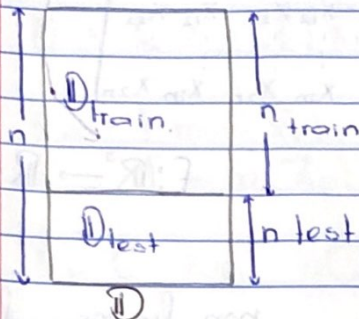 𝔻train
n train
n
𝔻test
n test
𝔻